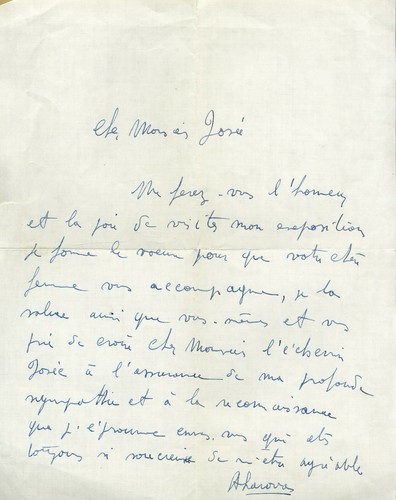 Cher Monsieur Josée
Me ferez-vous l'honneur
et la joie de visiter mon exposition
je forme le voeux pour que votre chère
femme vous accompagne, je la
salue ainsi que vous-mêmes et vous
prie de croire cher Monsieur l'échevin
Josée à l'assurance de ma profonde
sympathie et à la reconnaissance
que j'éprouve envers vous qui êtes
toujours si soucieux de m'être agréable